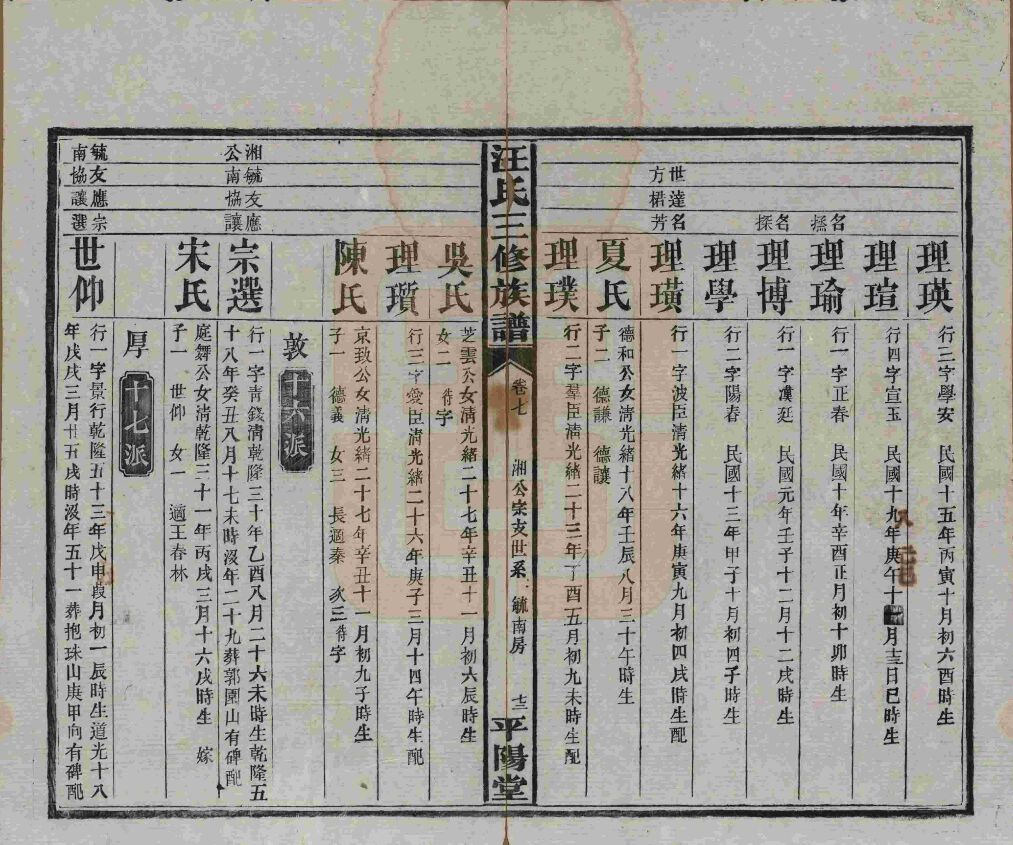 理瑛 行三字學安 民國十五年丙寅十月初六酉時生
理瑄 行四字宣玉 民國十九年庚午十 月十三日巳時生
名撫
理瑜 行一字正春 民國十年辛酉正月初十卯時生
名探
理博 行一字漢廷 民國元年壬子十二月十二戌時生
理學 行二字陽春 民國十三年甲子十月初四子時生
世達名
方桾芳
理璜 行一字波臣清光緒十六年庚寅九月初四戌時生配
夏氏 德和公女清光緒十八年壬辰八月三十午時生
子二 德謙 德讓
理璞 行二字羣臣清光緒二十三年丁酉五月初九未時生配
汪氏三修族譜 卷七 湘公宗支世系 毓南房 十三 平陽堂
吳氏 芝雲公女清光緒二十七年辛丑十一月初六辰時生
女二 待字
理瓚 行三字愛臣清光緒二十六年庚子三月十四午時生配
陳氏 京致公女清光緒二十七年辛丑十一月初九子時生
子一 德義 女三 長適秦 次三待字
敦 十六派
湘毓友應
公南協讓
宗選 行一字青錢清乾隆三十年乙酉八月二十六未時生乾隆五
十八年癸丑八月十七未時沒年二十九葬郭園山有碑配
宋氏 庭舞公女清乾隆三十一年丙戌三月十六戌時生 嫁
子一 世仰 女一 適王春林
厚 十七派
毓友應宗
南協讓選
世仰 行一字景行乾隆五十三年戊申葭月初一辰時生道光十八
年戊戌三月廿五戌時沒年五十一葬抱珠山庚甲向有碑配